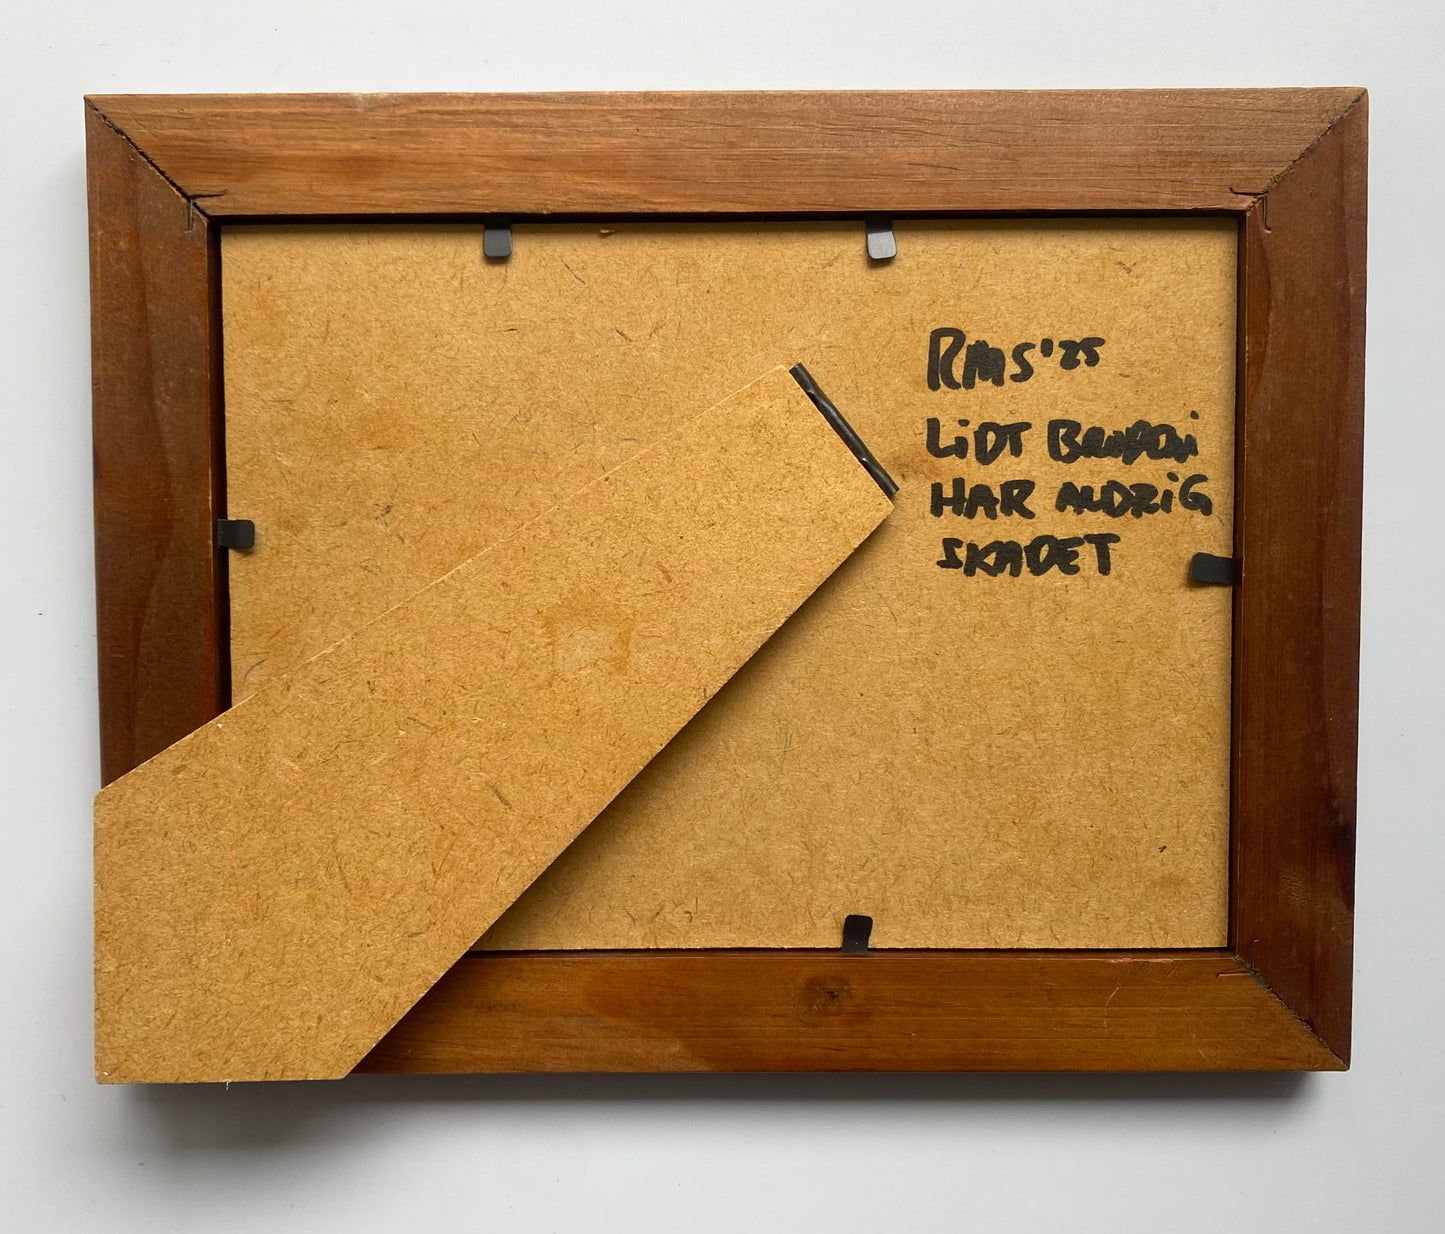 RMS '25
LiDT BRODERi
HAR ALDRiG
SKADET